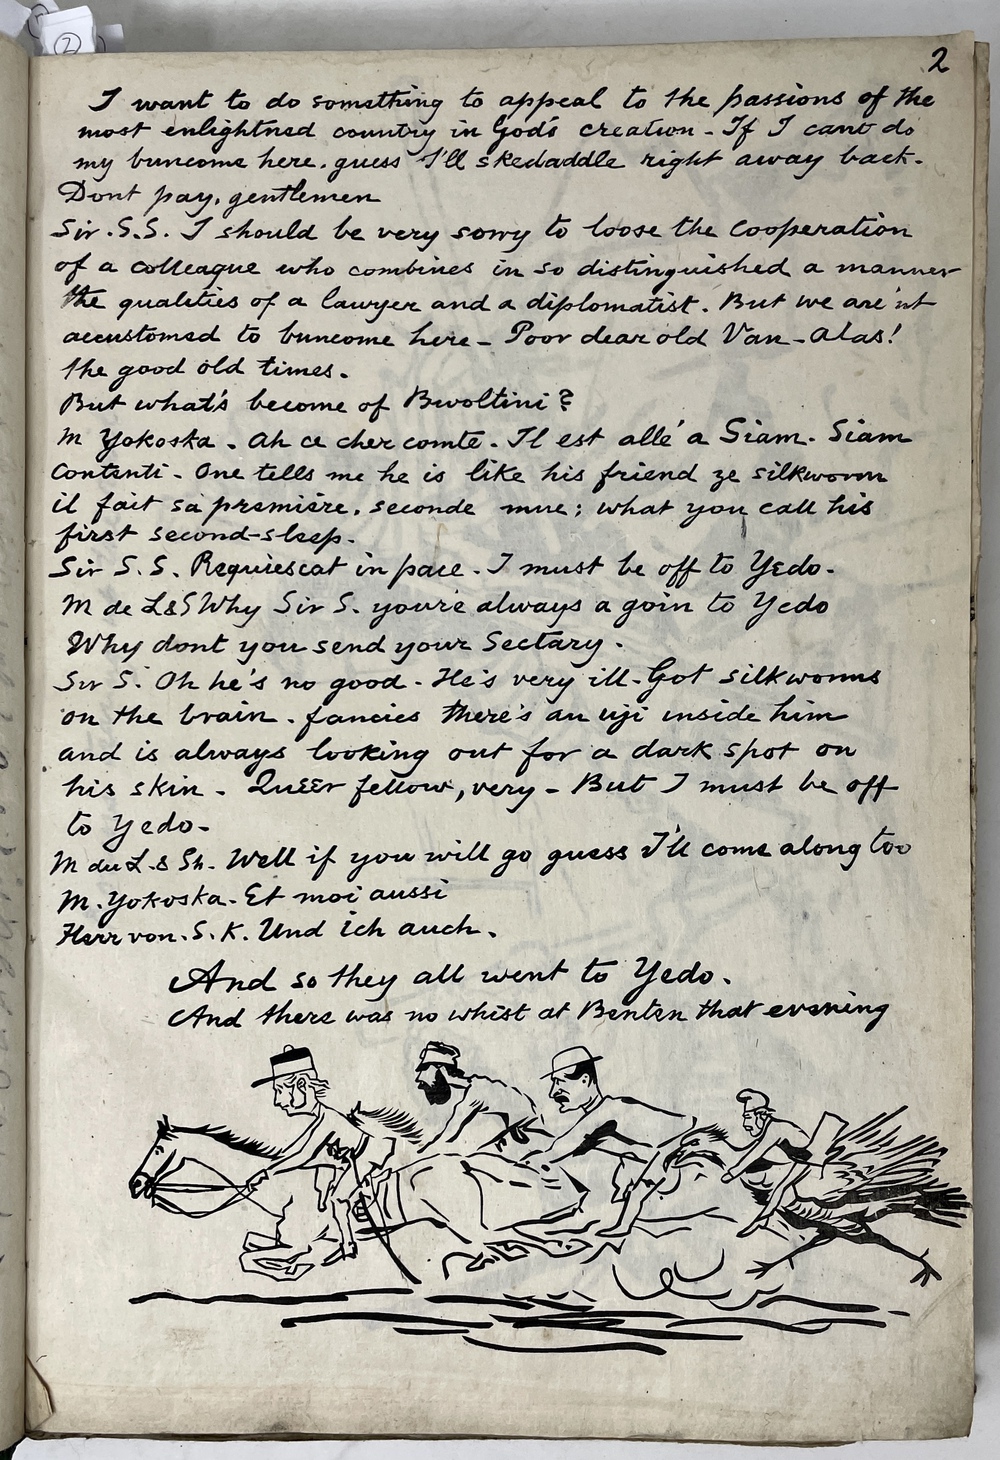 2
2
I want to do something to appeal to the passions of the
most enlightned country in God's creation - If I cant do
my buncome here. guess I'll skedaddle right away back.
Dont pay, gentlemen
Sir. S.S. I should be very sorry to loose the cooperation
of a colleague who combines in so distinguished a manner
the qualities of a lawyer and a diplomatist. But we are'nt
accustomed to buncome here - Poor dear old Van - alas!
the good old times.
But what's become of Bwoltini?
M Yokoska. Ah ce cher comte. Il est allé a Siam. Siam
Contenti - One tells me he is like his friend ze silkworm
il fait sa première, seconde mue; what you call his
first second-sleep.
Sir S.S. Requiescat in pace. I must be off to Yedo.
M de L&S Why Sir S. you're always a goin to Yedo
Why dont you send your Sectary.
Sir S. Oh he's no good. He's very ill. Got silkworms
on the brain. fancies there's an uji inside him
and is always looking out for a dark spot on
his skin. Queer fellow, very - But I must be off
to Yedo -
M du L. & Sh. Well if you will go guess I'll come along too
M. Yokoska. Et moi aussi
Herr von. S. K. Und ich auch.
And so they all went to Yedo.
And there was no whist at Benten that evening